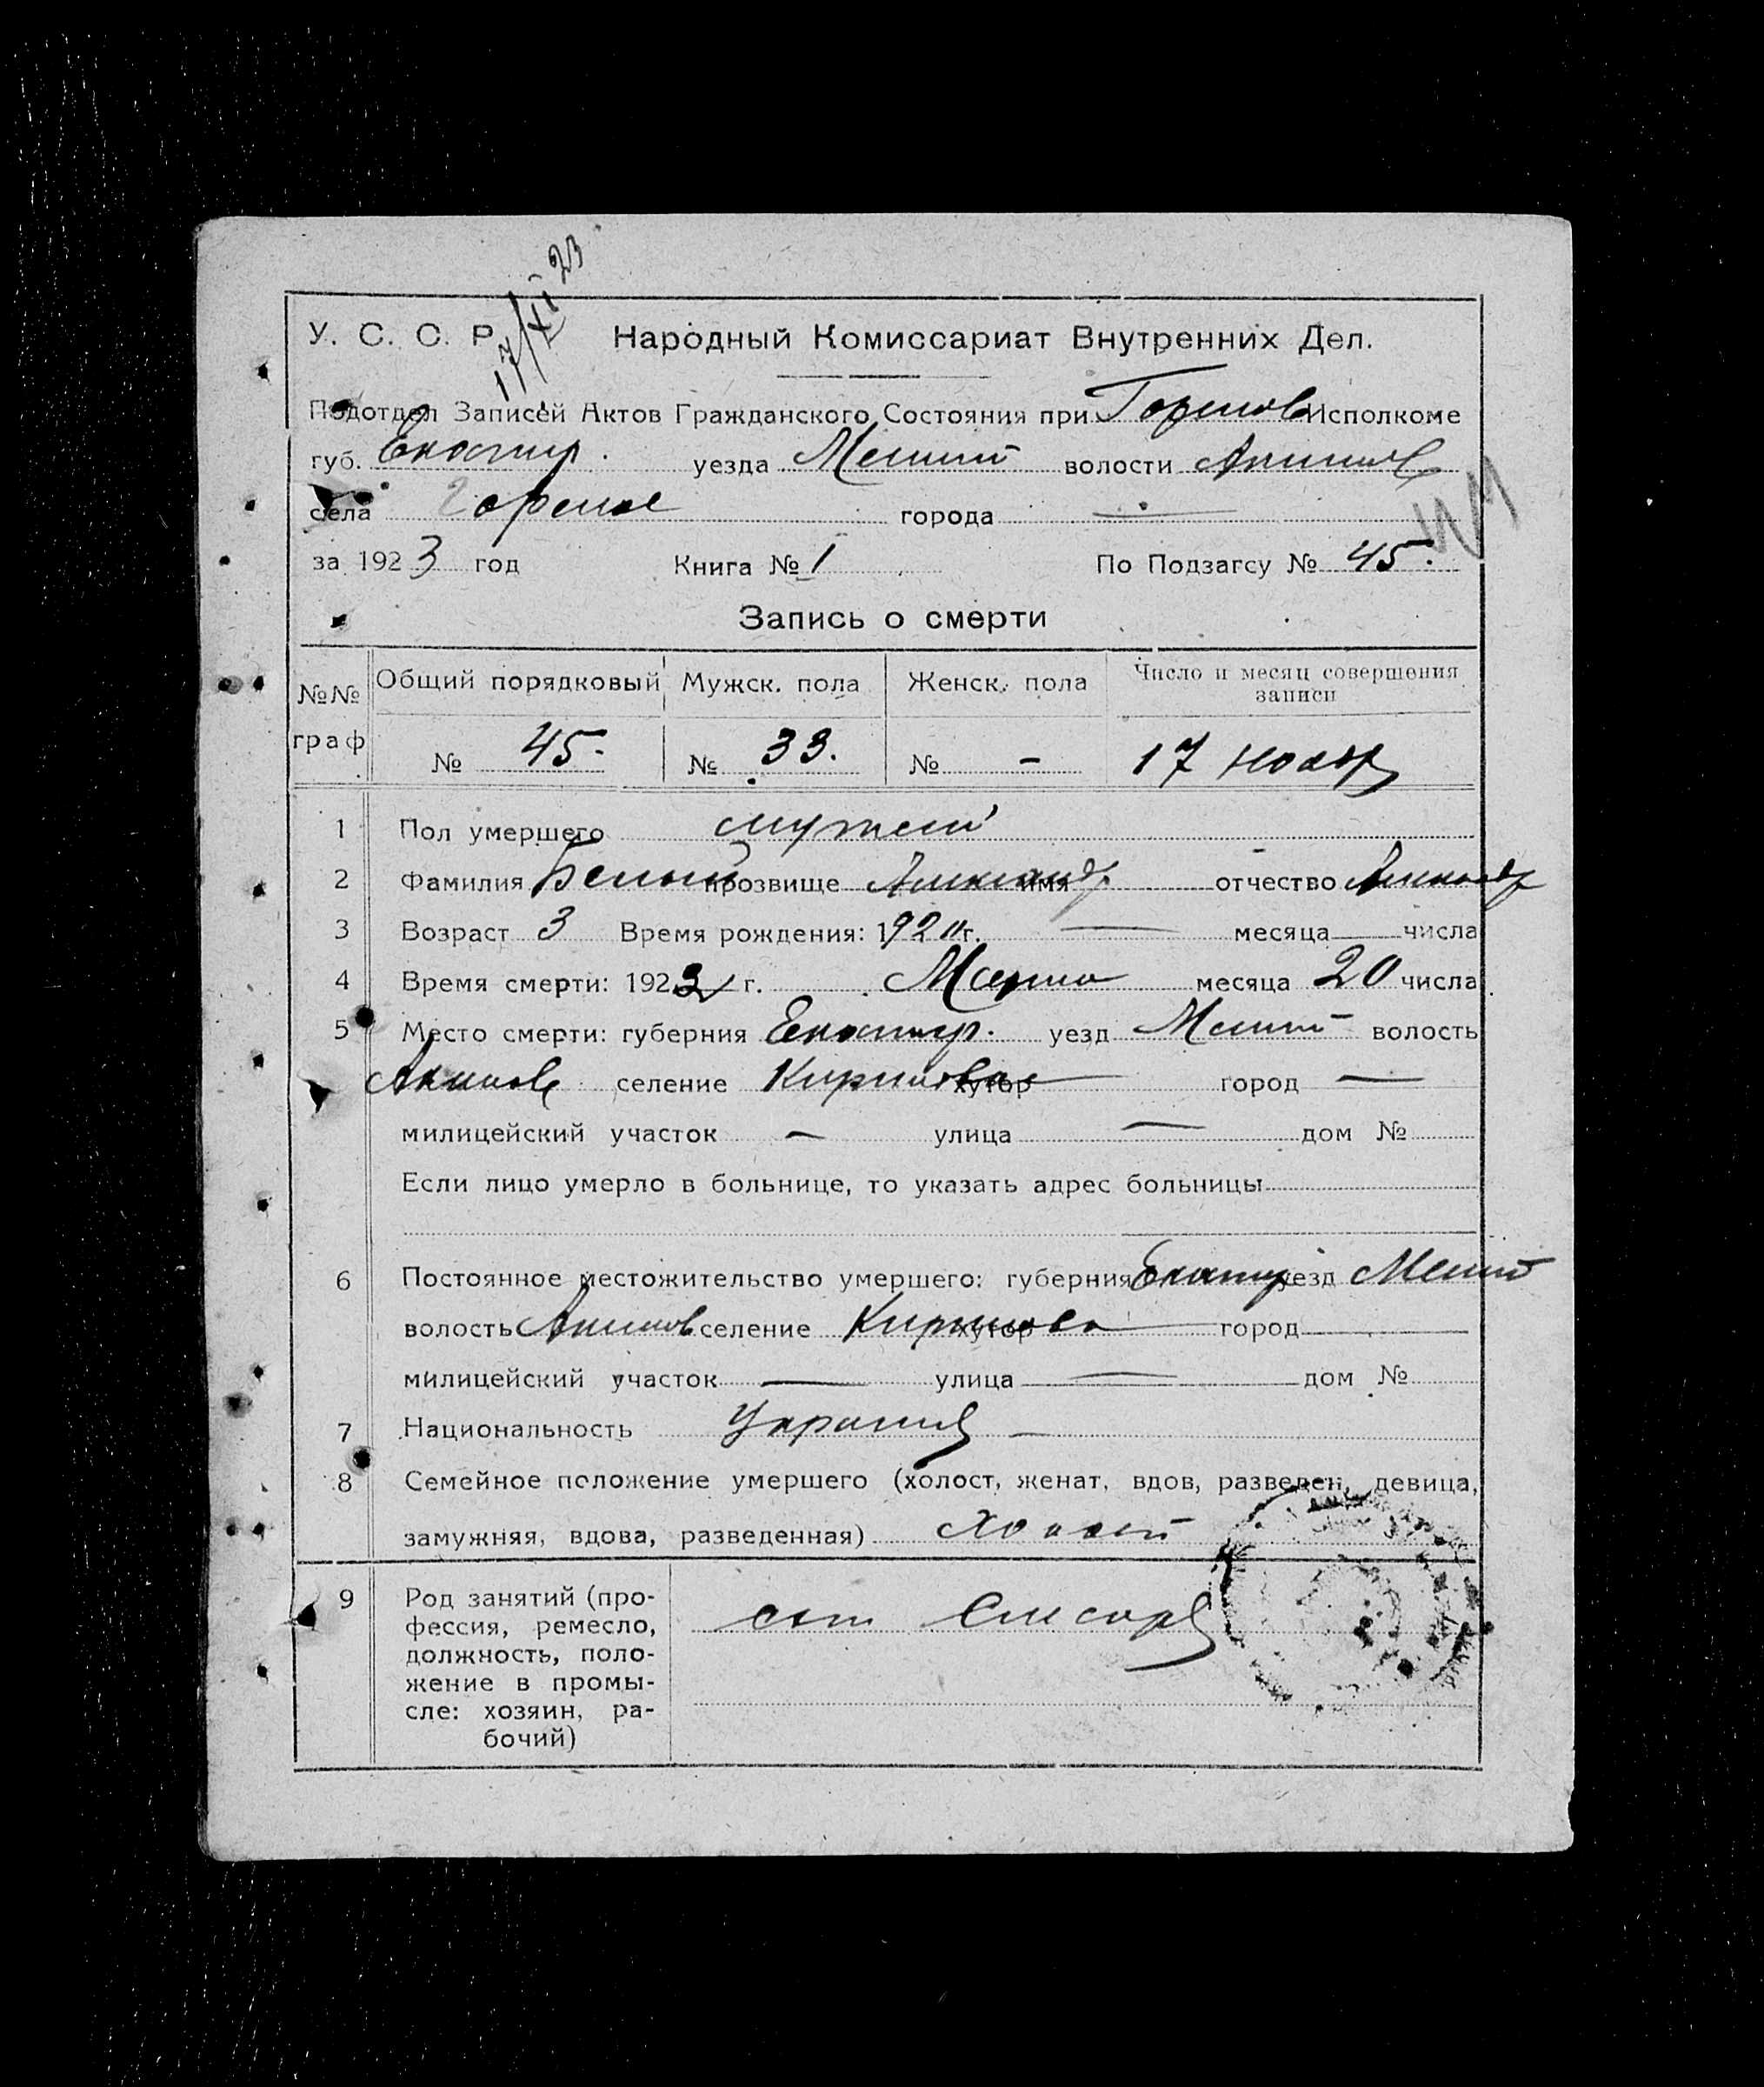 17/XI 23
У. С. С. Р. Народный Комиссариат Внутренних Дел.
Подотдел Записей Актов Гражданского Состояния при Исполкоме
губ. Екатир. уезда Мелит волости Акимов
села Горелое города —
за 1923 год Книга № 1 По Подзагсу № 45.
Запись о смерти
№№ граф Общий порядковый Мужск. пола Женск. пола Число и месяц совершения записи
№ 45. № 33. № - 17 ноябр
1 Пол умершего мужской
2 Фамилия Белый прозвище Александр имя отчество Александр
3 Возраст 3 Время рождения: 1920 г. — месяца — числа
4 Время смерти: 192 г. Марта месяца 20 числа
5 Место смерти: губерния Екатир. уезд Мелит волость
Акимов селение Кирилловка хутор город —
милицейский участок — улица — дом №
Если лицо умерло в больнице, то указать адрес больницы
6 Постоянное местожительство умершего: губерния Екатир уезд Мелит
волость Акимов селение хутор город
милицейский участок — улица — дом №
7 Национальность Украинец —
8 Семейное положение умершего (холост, женат, вдов, разведен, девица,
замужняя, вдова, разведенная) холост
9 Род занятий (про-
фессия, ремесло,
должность, поло-
жение в промы-
сле: хозяин, ра-
бочий)
сын